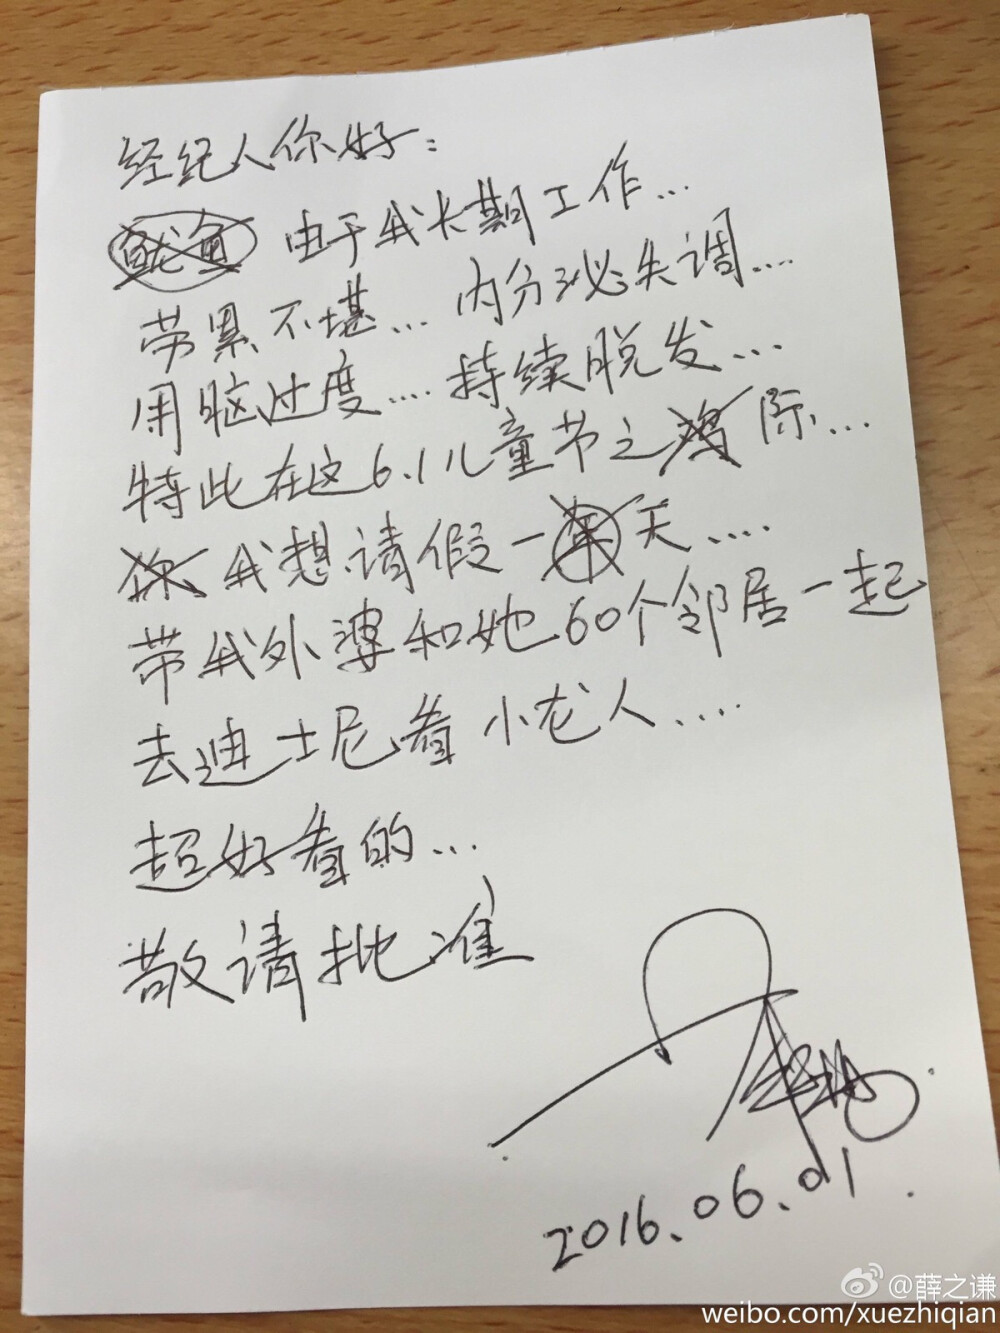 经纪人你好：
鱿鱼 由于我长期工作...
劳累不堪... 内分泌失调....
用脑过度.... 持续脱发...
特此在这6.1儿童节之 际...
你 我想请假一年天....
带我外婆和她60个邻居一起
去迪士尼看小龙人....
超好看的...
敬请批准
2016.06.01
@薛之谦
weibo.com/xuezhiqian